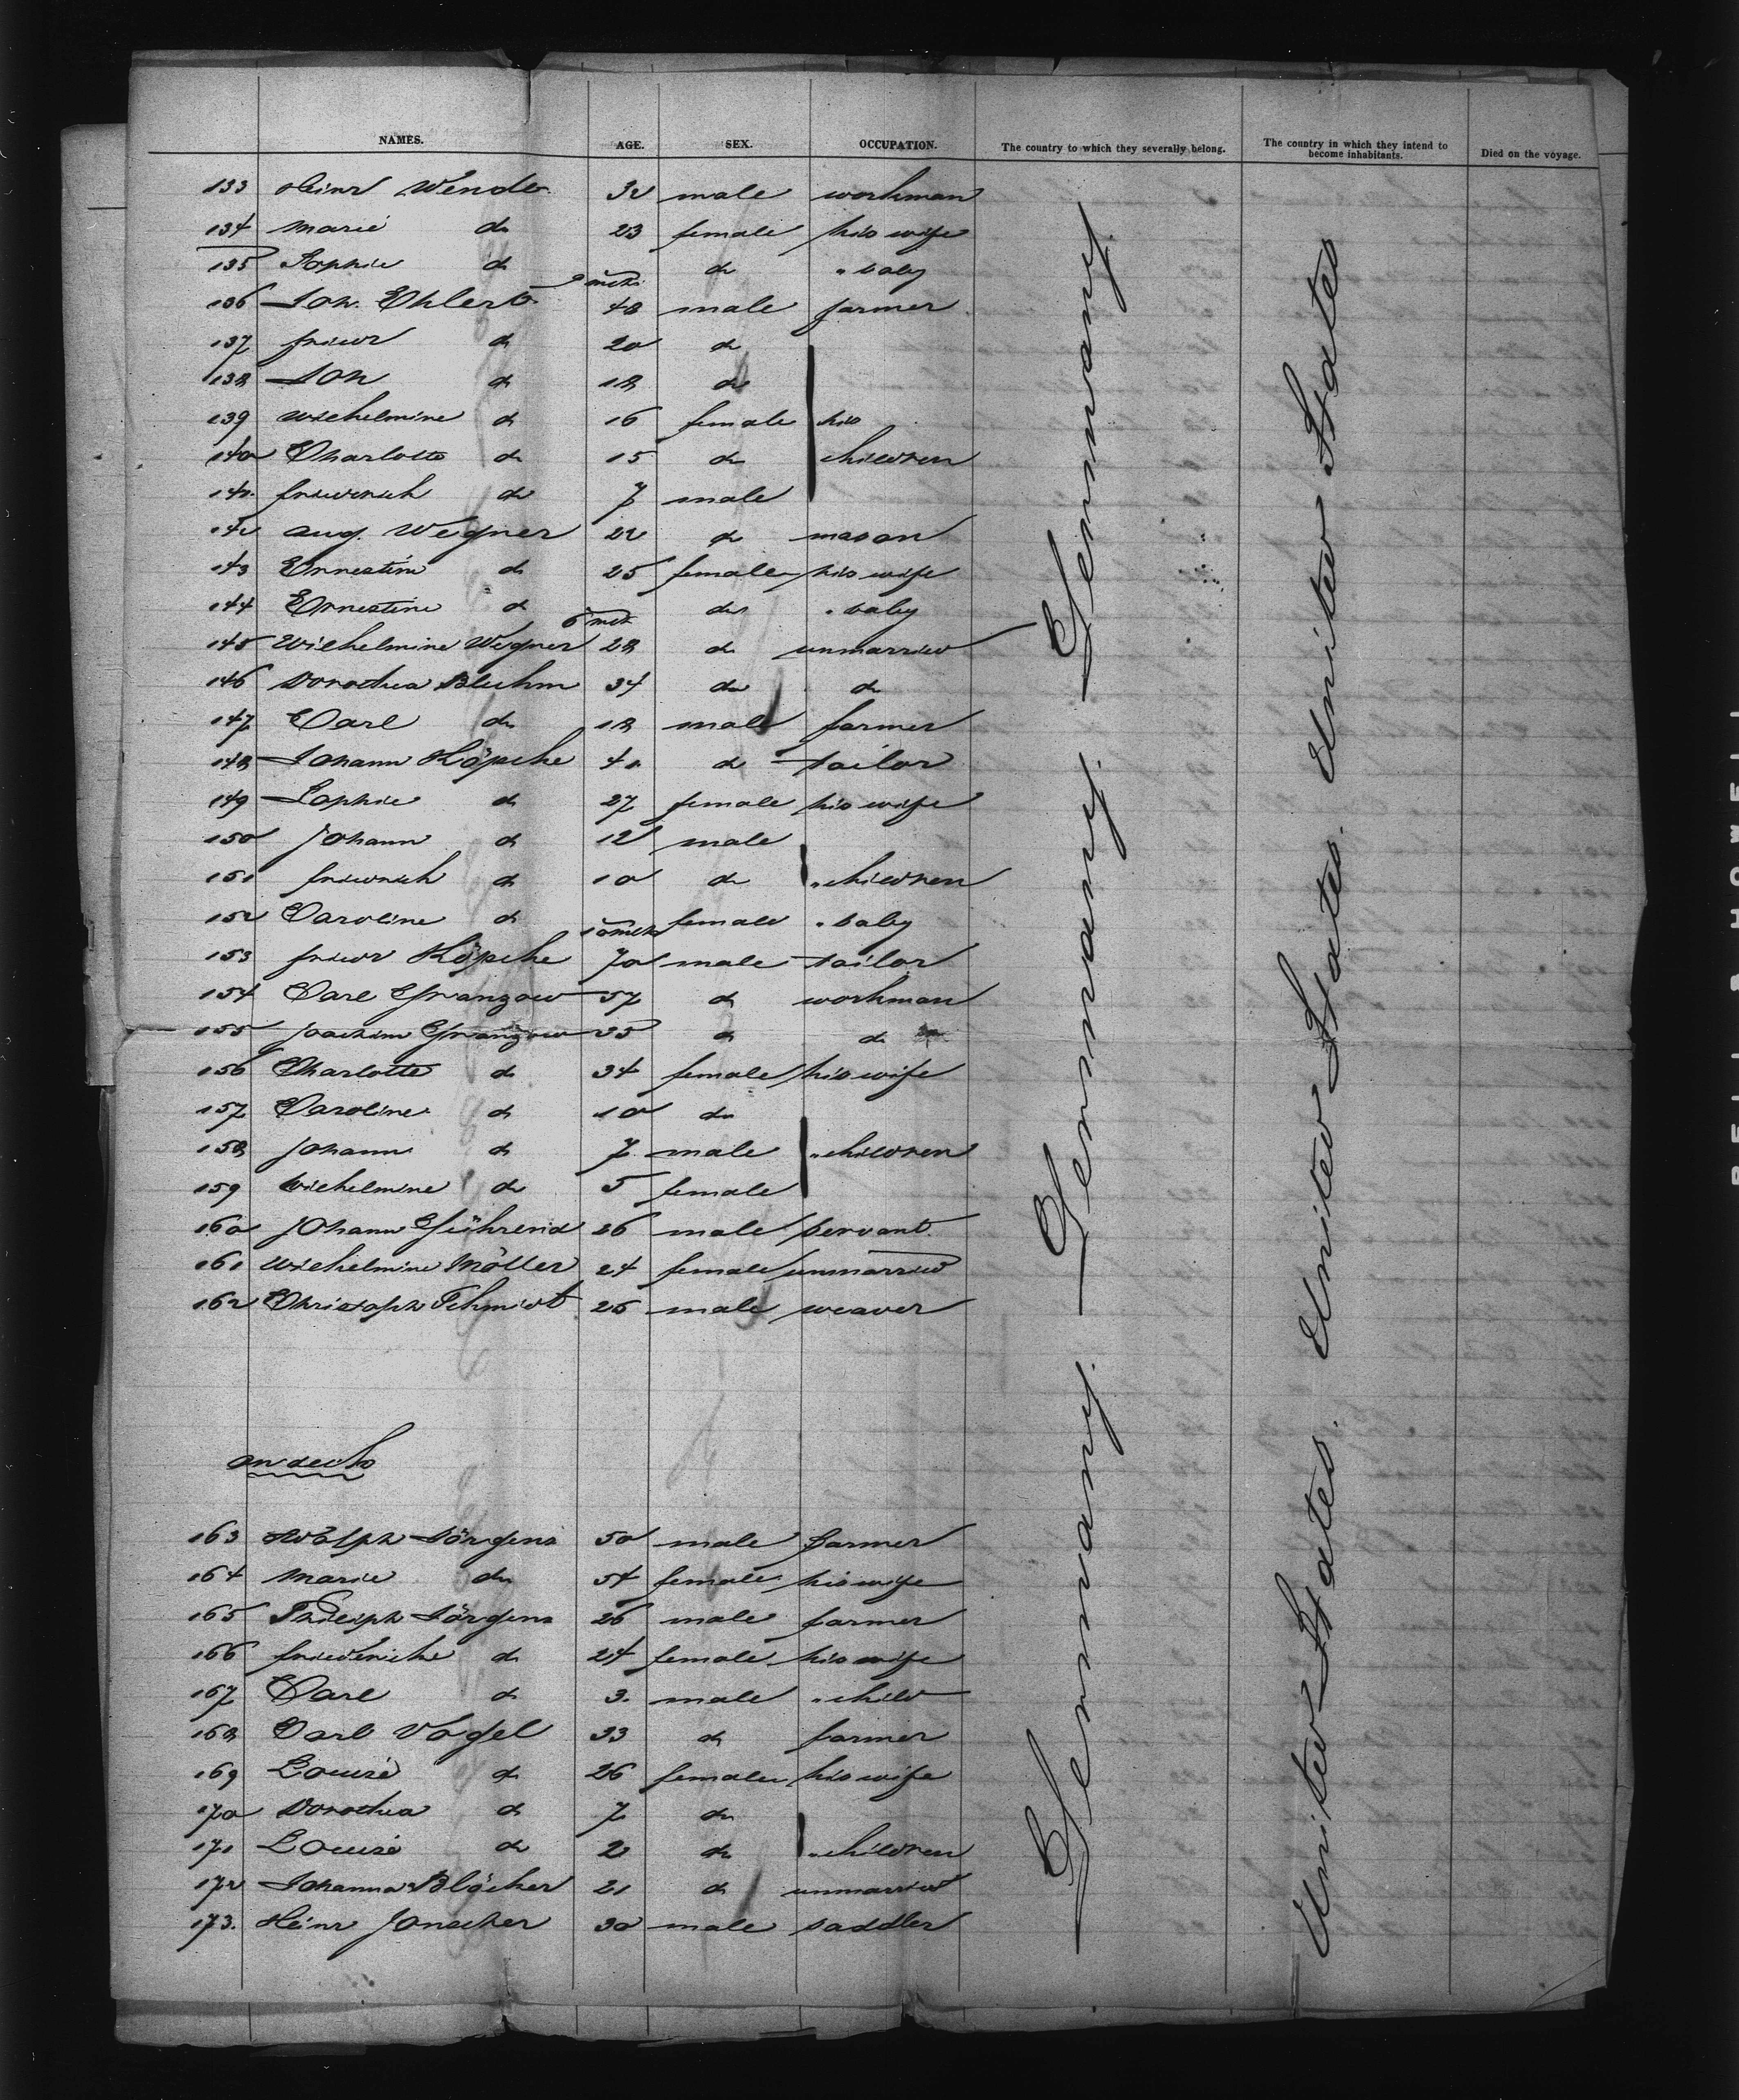 NAMES. AGE. SEX. OCCUPATION. The country to which they severally belong. The country in which they intend to become inhabitants. Died on the voyage.
133 Heinr Wendt 32 male workman
134 Marie do 23 female his wife
135 Sophie do 9 mth. do " baby
136 Joh. Ehlert 48 male farmer
137 friedr do 20 do
138 Joh do 18 do
139 Wilhelmine do 16 female his
140 Charlotte do 15 do children
141 friedrich do 7 male
142 Aug. Wegner 22 do mason
143 Ernestine do 25 female his wife
144 Ernestine do 6 mth do " baby
145 Wilhelmine Wegner 28 do unmarried
146 Dorothea Bluhm 34 do do
147 Carl do 18 male farmer
148 Johann Köpcke 41 do tailor
149 Sophie do 27 female his wife
150 Johann do 12 male
151 friedrich do 10 do " children
152 Caroline do 10 mth female " baby
153 friedr Köpcke 70 male tailor
154 Carl Granzow 57 do workman
155 Joachim Granzow 35 do do
156 Charlotte do 34 female his wife
157 Caroline do 10 do
158 Johann do 7 male " children
159 Wilhelmine do 5 female
160 Johann 26 male servant.
161 Wilhelmine Möller 24 female unmarried
162 Christoph Schmidt 26 male weaver
on deck
163 Adolph Jörgens 50 male farmer
164 Marie do 54 female his wife
165 Philipp Jörgens 26 male farmer
166 friederich do 24 female his wife
167 Carl do 3. male " child
168 Carl Vogel 33 do farmer
169 Louise do 26 female his wife
170 Dorothea do 7 do
171 Louise do 2 do " children
172 Johanna Blöcker 21 do unmarried
173. Heinr Jonscher 30 male saddler
Germany. Germany. Germany.
United States. United States. United States